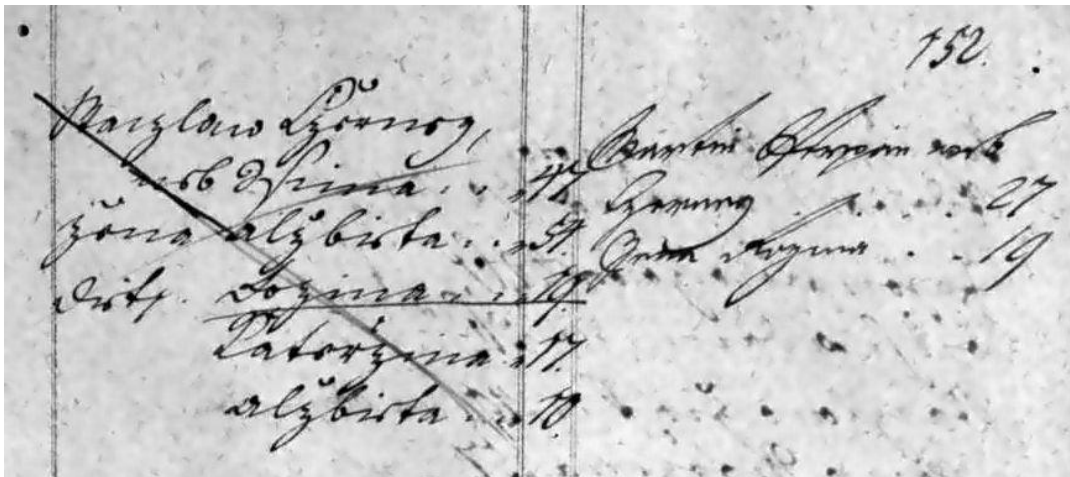 152.
Waczlaw Czierney,
neb Zima .. 47
žena Alžbieta .. 51
Diete. Rozina .. 19
Kateržina . 17.
Alžbieta .. 10
Martin neb
Czerney .. 27
Žena Rozina .. 19